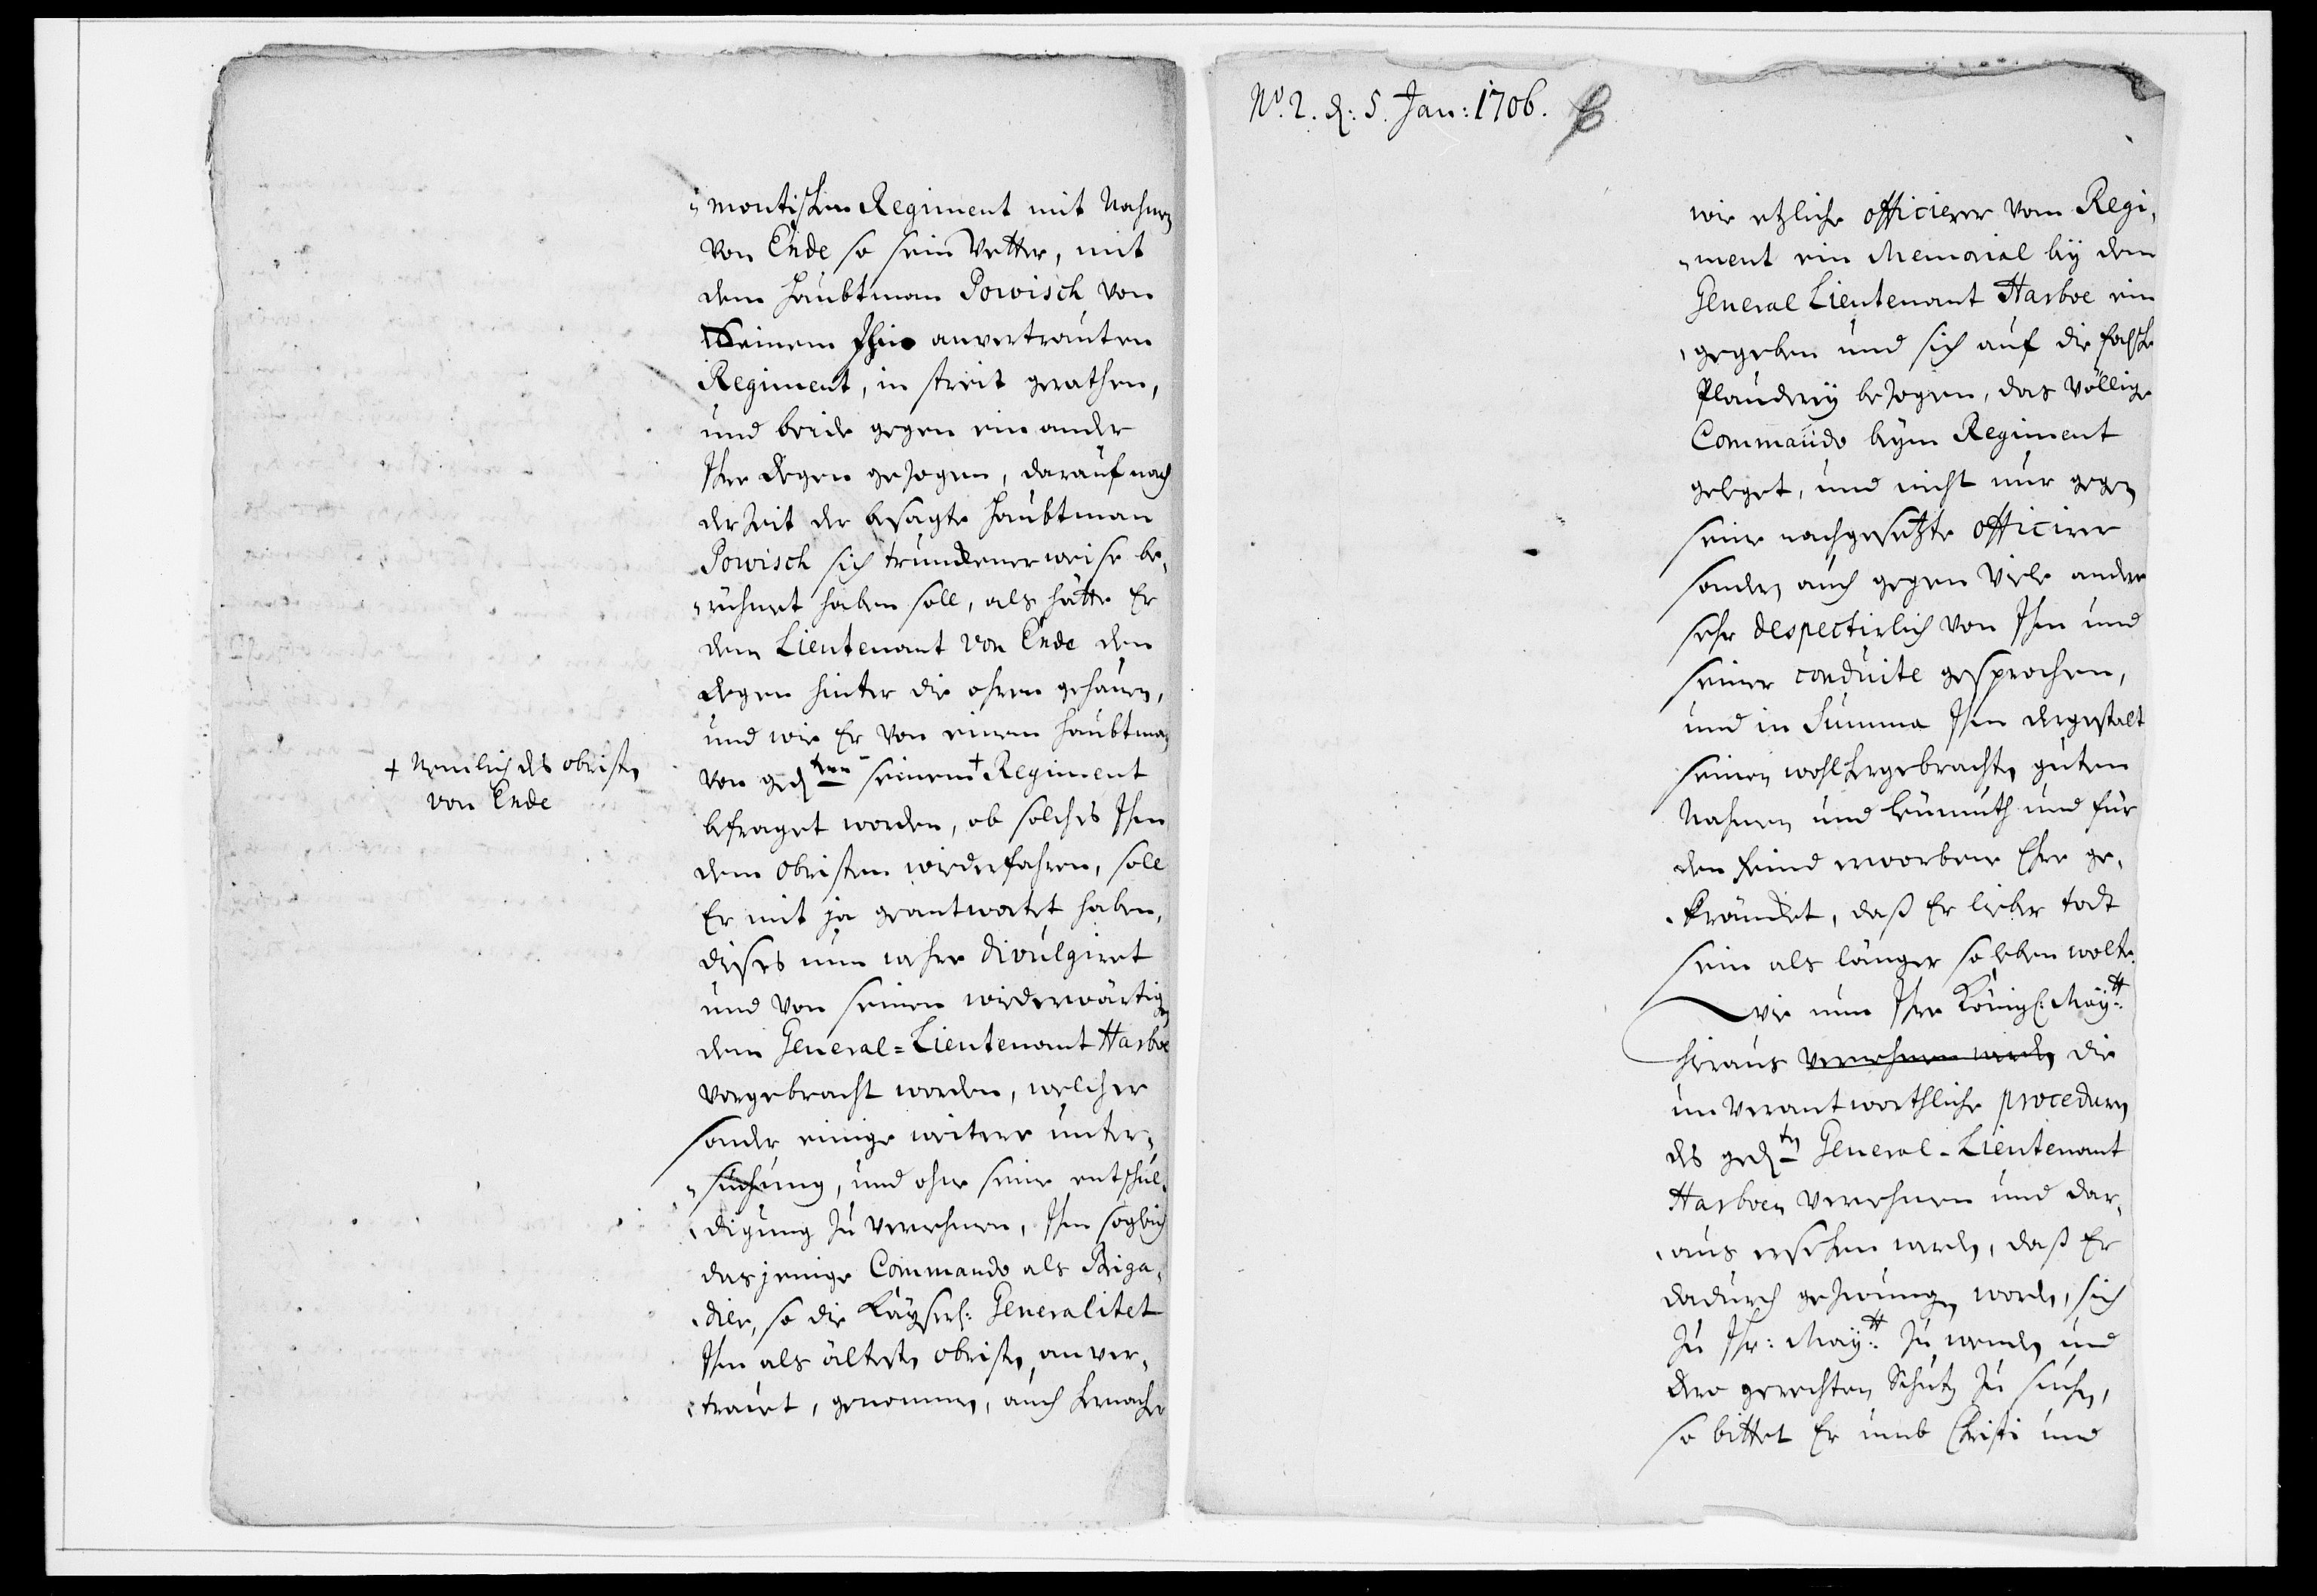 "montischen Regiment mit Nahmen
von Ende so sein Vetter, mit
dem Haubtman Powisch von
seinem Ihm anvertrauten
Regiment, in streit gerathen,
und beide gegen ein ander
Ihre degen gezogen, darauf nach
der Zeit der besagte Haubtman
Powisch sich trunckener weise be,
"rühmet haben soll, als hätte Er
dem Lieutenant von Ende den
degen hinter die ohren gehauen,
und wie Er von einem Haubtman
von ged:ten seinem + Regiment
+ Nemlich des obristen
von Ende
befraget worden, ob solches Ihm
dem Obristen wiederfahren, soll
Er mit ja geantwortet haben,
dieses nun wehre divulgiret
und von seinen wiederwärtigen
dem General=Lieutenant Harboe
vorgebracht worden, welcher
sonder einige weitere unter,
"suchung, und ohne seine entschul,
"digung zu vernehmen, Ihm sogleich
dasjenige Commando als Briga,
"dier, so die Käyserl: Generalitet
Ihm als ältesten obristen anver,
"trauet, genommen, auch hernacher
No. 2. d: 5. Jan: 1706.
wie etzliche officierer vom Regi,
"ment ein Memorial by dem
General Lieutenant Harboe ein
"gegeben und sich auf die falsche
Plauderey bezogen, das völlige
Commando beym Regiment
geleget, und nicht nur gegen
seine nachgesetzte officirer
sondern auch gegen viele andere
sehr despectirlich von Ihm und
seiner conduite gesprochen,
und in Summa Ihm dergestalt
seinen wohlhergebrachten guten
Nahmen und Leumuth und für
den Feind erworbene Ehre ge,
"kräncket, daß Er lieber todt
sein als länger so leben wolte.
Wie nun Ihre Königl: Mayt:
hieraus vernehmen werden die
unverantworthliche proceduren
des ged:ten General-Lieutenant
Harboen vernehmen und dar,
"aus ersehen werden, daß Er
dadurch gezwungen worden, sich
zu Ihr: Mayt: zu wenden und
dero gerechten Schutz zu suchen,
so bittet Er umb Christi und